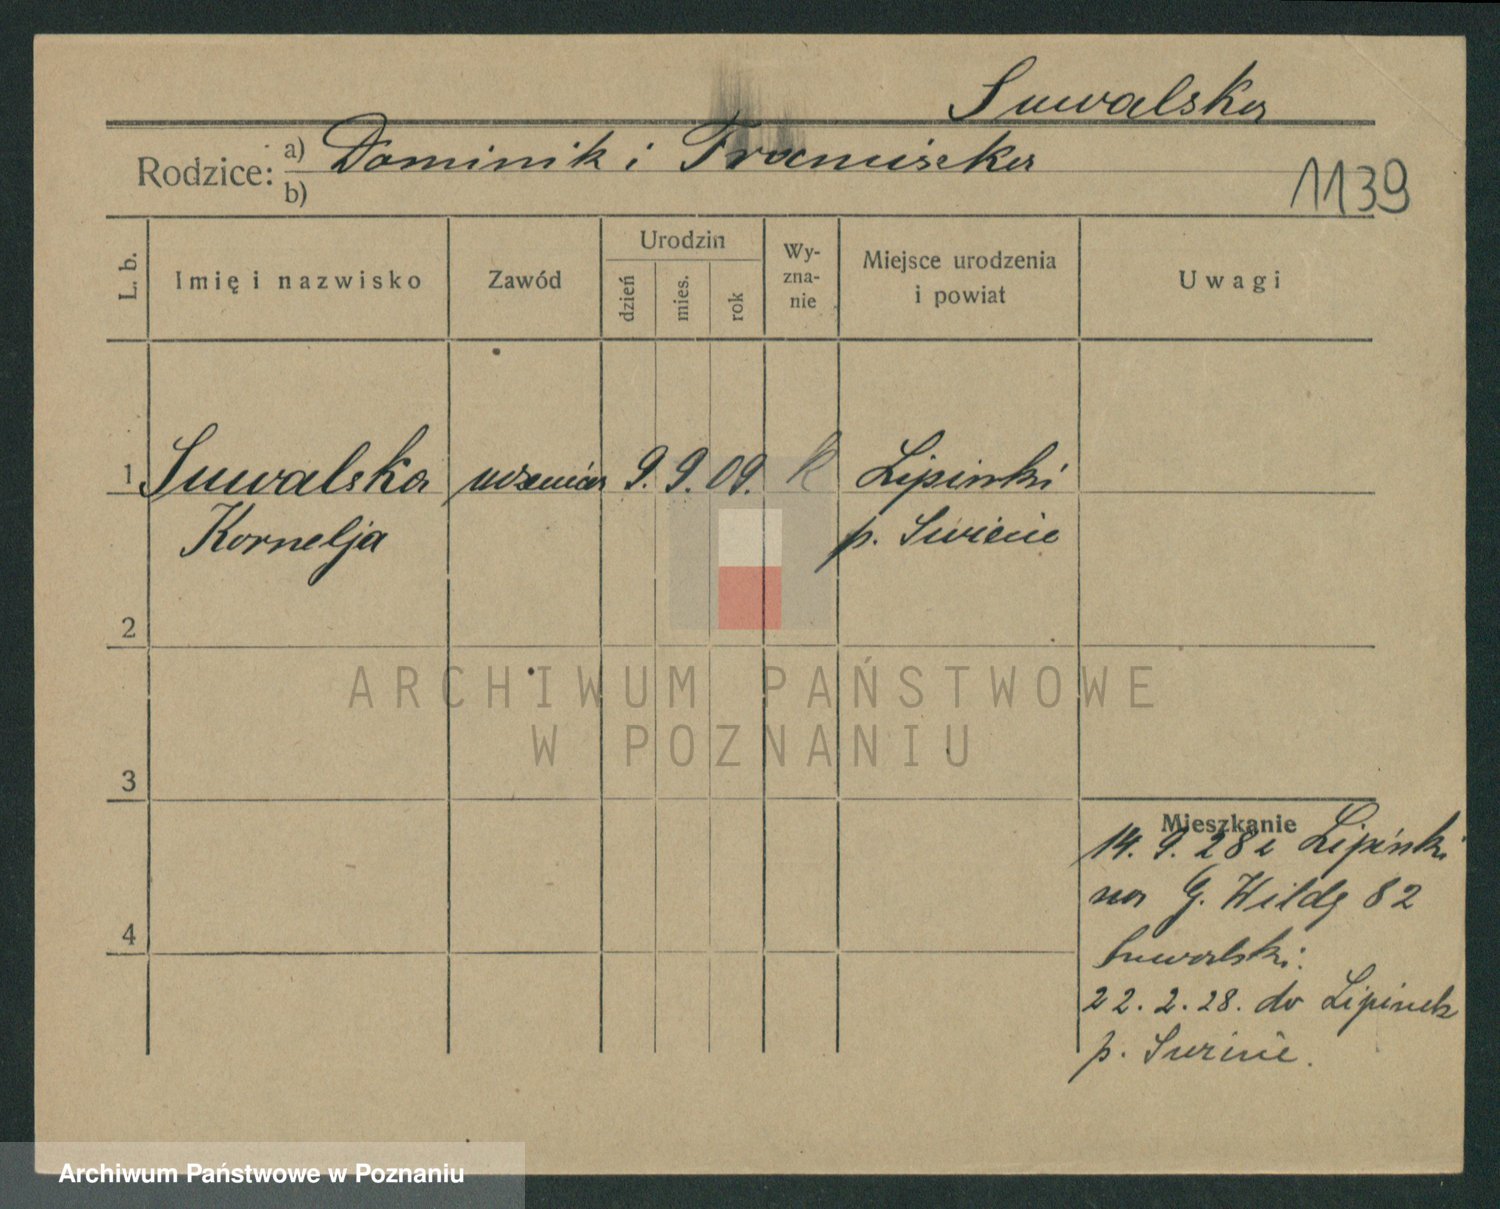 Suwalska
Rodzice: a) Dominik i Franciszka
b)
1139
L. b.
Imię i nazwisko
Zawód
Urodzin
dzień
mies.
rok
Wy-
zna-
nie
Miejsce urodzenia
i powiat
Uwagi
1 Suwalska 9. 9. 09. k Lipinki
Kornelja p. Swiecie
2
3
4
Mieszkanie
14. 9. 28 z Lipinki
na G. Wildę 82
Suwalski.
22. 2. 28. do Lipinek
p. Swiecie.
ARCHIWUM PAŃSTWOWE
W POZNANIU
Archiwum Państwowe w Poznaniu